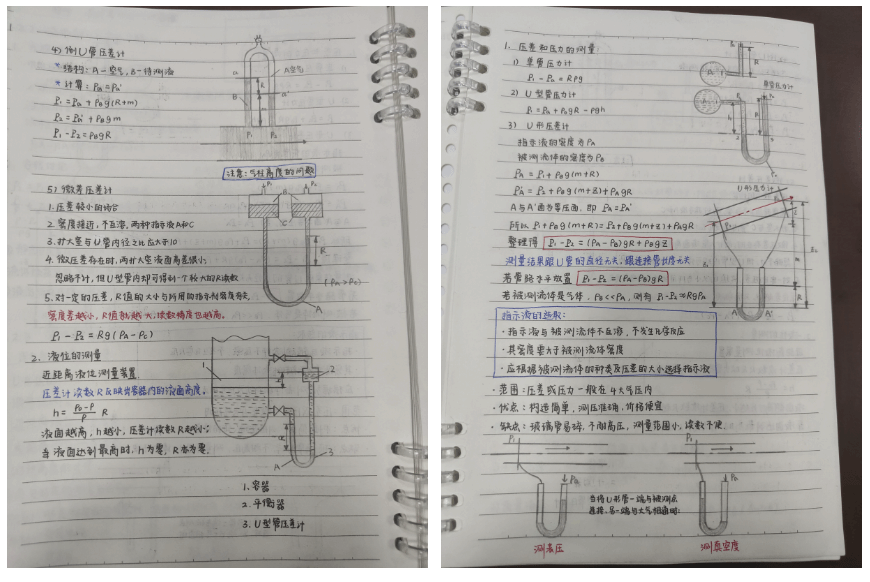 4) 倒U管压差计
*结构: A-空气, B-待测液
*计算: Pa=Pa'
P₁=Pa+ρBg(R+m)
P₂=Pa'+ρBgm
P₁-P₂=ρBgR
A空气
a
a'
B
R
P₁
P₂
注意: 气柱高度的问题
5) 微差压差计
1. 压差较小的场合
2. 密度接近, 不互溶, 两种指示液A和C
3. 扩大室与U管内径之比应大于10
4. 微压差存在时, 两扩大室液面高差很小
忽略不计, 但U型管内却可得到一个较大的R读数
5. 对一定的压差, R值的大小与所用的指示剂密度有关,
密度差越小, R值就越大, 读数精度也越高。
P₁-P₂=Rg(ρA-ρC)
P₁
P₂
R
(ρA>ρC)
A
2. 液位的测量
近距离液位测量装置
压差计读数R反映出容器内的液面高度。
h=(ρ₀-ρ)/ρ R
液面越高, h越小, 压差计读数R越小;
当液面达到最高时, h为零, R亦为零。
1
2
3
A
1. 容器
2. 平衡器
3. U型管压差计
1. 压差和压力的测量:
1) 单管压力计
P₁-Pa=Rρg
单管压力计
2) U型管压力计
P₁=Pa+ρ₀gR-ρgh
3) U形压差计
指示液的密度为ρA
被测流体的密度为ρB
PA=P₁+ρBg(m+R)
PA'=P₂+ρBg(m+Z)+ρAgR
A与A'面为等压面, 即 PA=PA'
所以 P₁+ρBg(m+R)=P₂+ρBg(m+Z)+ρAgR
整理得 P₁-P₂=(ρA-ρB)gR+ρBgZ
测量结果跟U管的直径无关, 跟连接管长度无关
若管路水平放置 P₁-P₂=(ρA-ρB)gR
若被测流体是气体, ρB<<ρA, 则有 P₁-P₂≈RgρA
U形压力计
A
A'
R
指示液的选取:
·指示液与被测流体不互溶, 不发生化学反应
·其密度要大于被测流体密度
·应根据被测流体的种类及压差的大小选择指示液
·范围: 压差或压力一般在4大气压内
·优点: 构造简单, 测压准确, 价格便宜
·缺点: 玻璃管易碎, 不耐高压, 测量范围小, 读数不便.
P₁
Pa
当将U形管一端与被测点
连接、另一端与大气相通时:
P₁
Pa
测表压
测真空度